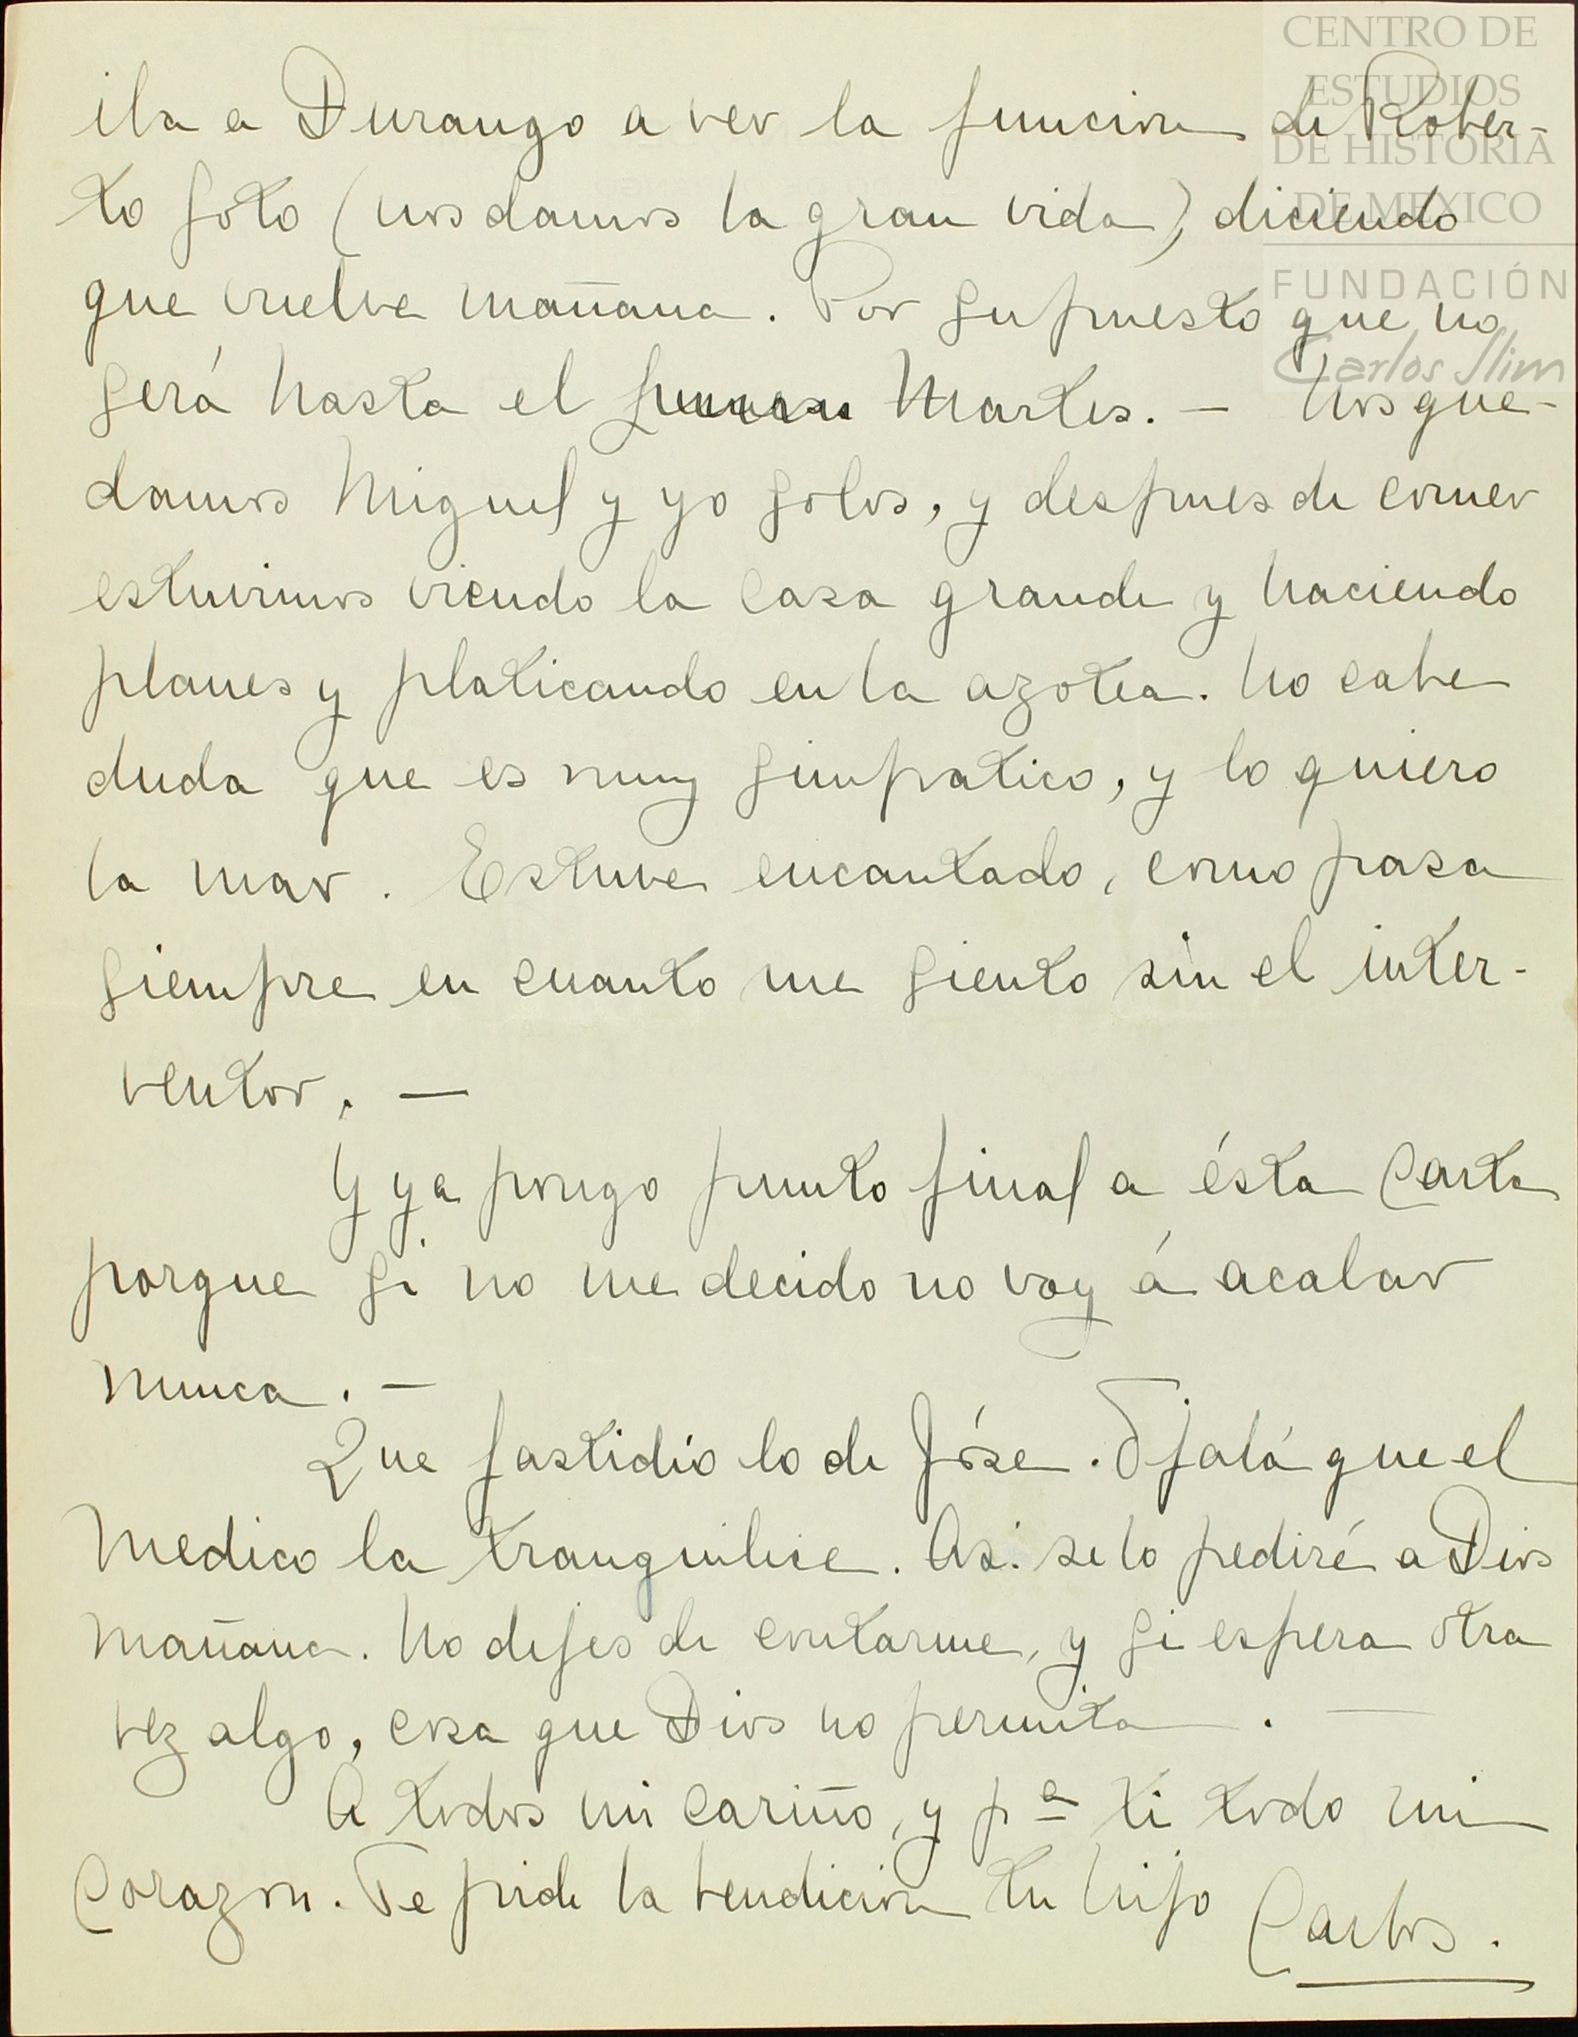 CENTRO DE
ESTUDIOS
DE HISTORIA
DE MEXICO
FUNDACIÓN
Carlos Slim
iba a Durango a ver la funcion de Rober-
to Soto (nos damos la gran vida) diciendo
que vuelve mañana. Por supuesto que no
será hasta el Martes. — Nos que-
damos Miguel y yo solos, y despues de comer
estuvimos viendo la casa grande y haciendo
planes y platicando en la azotea. No cabe
duda que es muy simpatico, y lo quiero
la mar. Estuve encantado, como pasa
siempre en cuanto me siento sin el inter-
ventor. —
Y ya pongo punto final a ésta Carta
porque si no me decido no voy á acabar
nunca. —
Que fastidio lo de Jóse. Ojalá que el
Medico la tranquilice. Asi se lo pediré a Dios
mañana. No dejes de contarme, y si espera otra
vez algo, cosa que Dios no permita. —
A todos mi cariño, y pª ti todo mi
Corazon. Te pide la bendicion tu hijo Carlos.